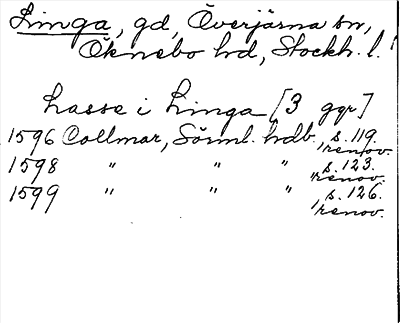 Linga, gd, Överjärna sn,
Öknebo hd, Stockh. l.
Lasse i Linga [3 ggr]
1596 Collmar, Sörml. hdb., s. 119.
renov.
1598 " " " s. 123.
renov.
1599 " " " s. 126.
renov.